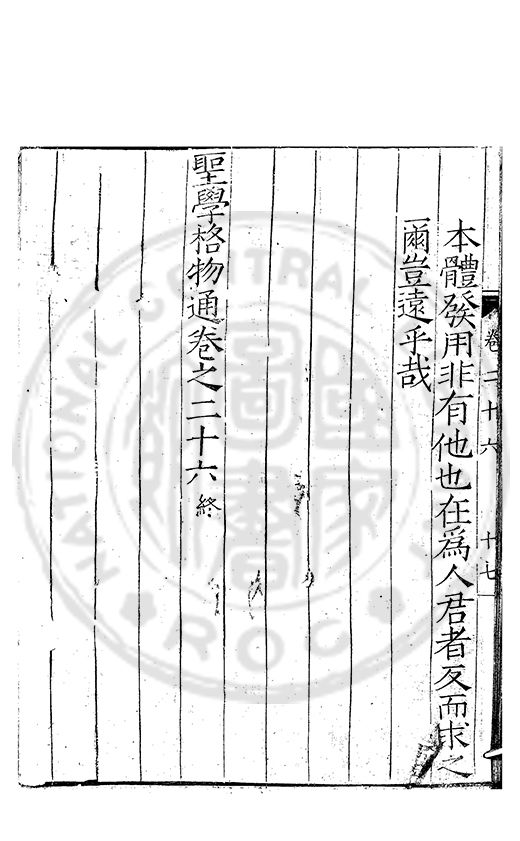 卷二十六 十七
本體發用非有他也在爲人君者反而求之
爾豈遠乎哉
聖學格物通卷之二十六終
NATIONAL CENTRAL
圖書
國家
ROC